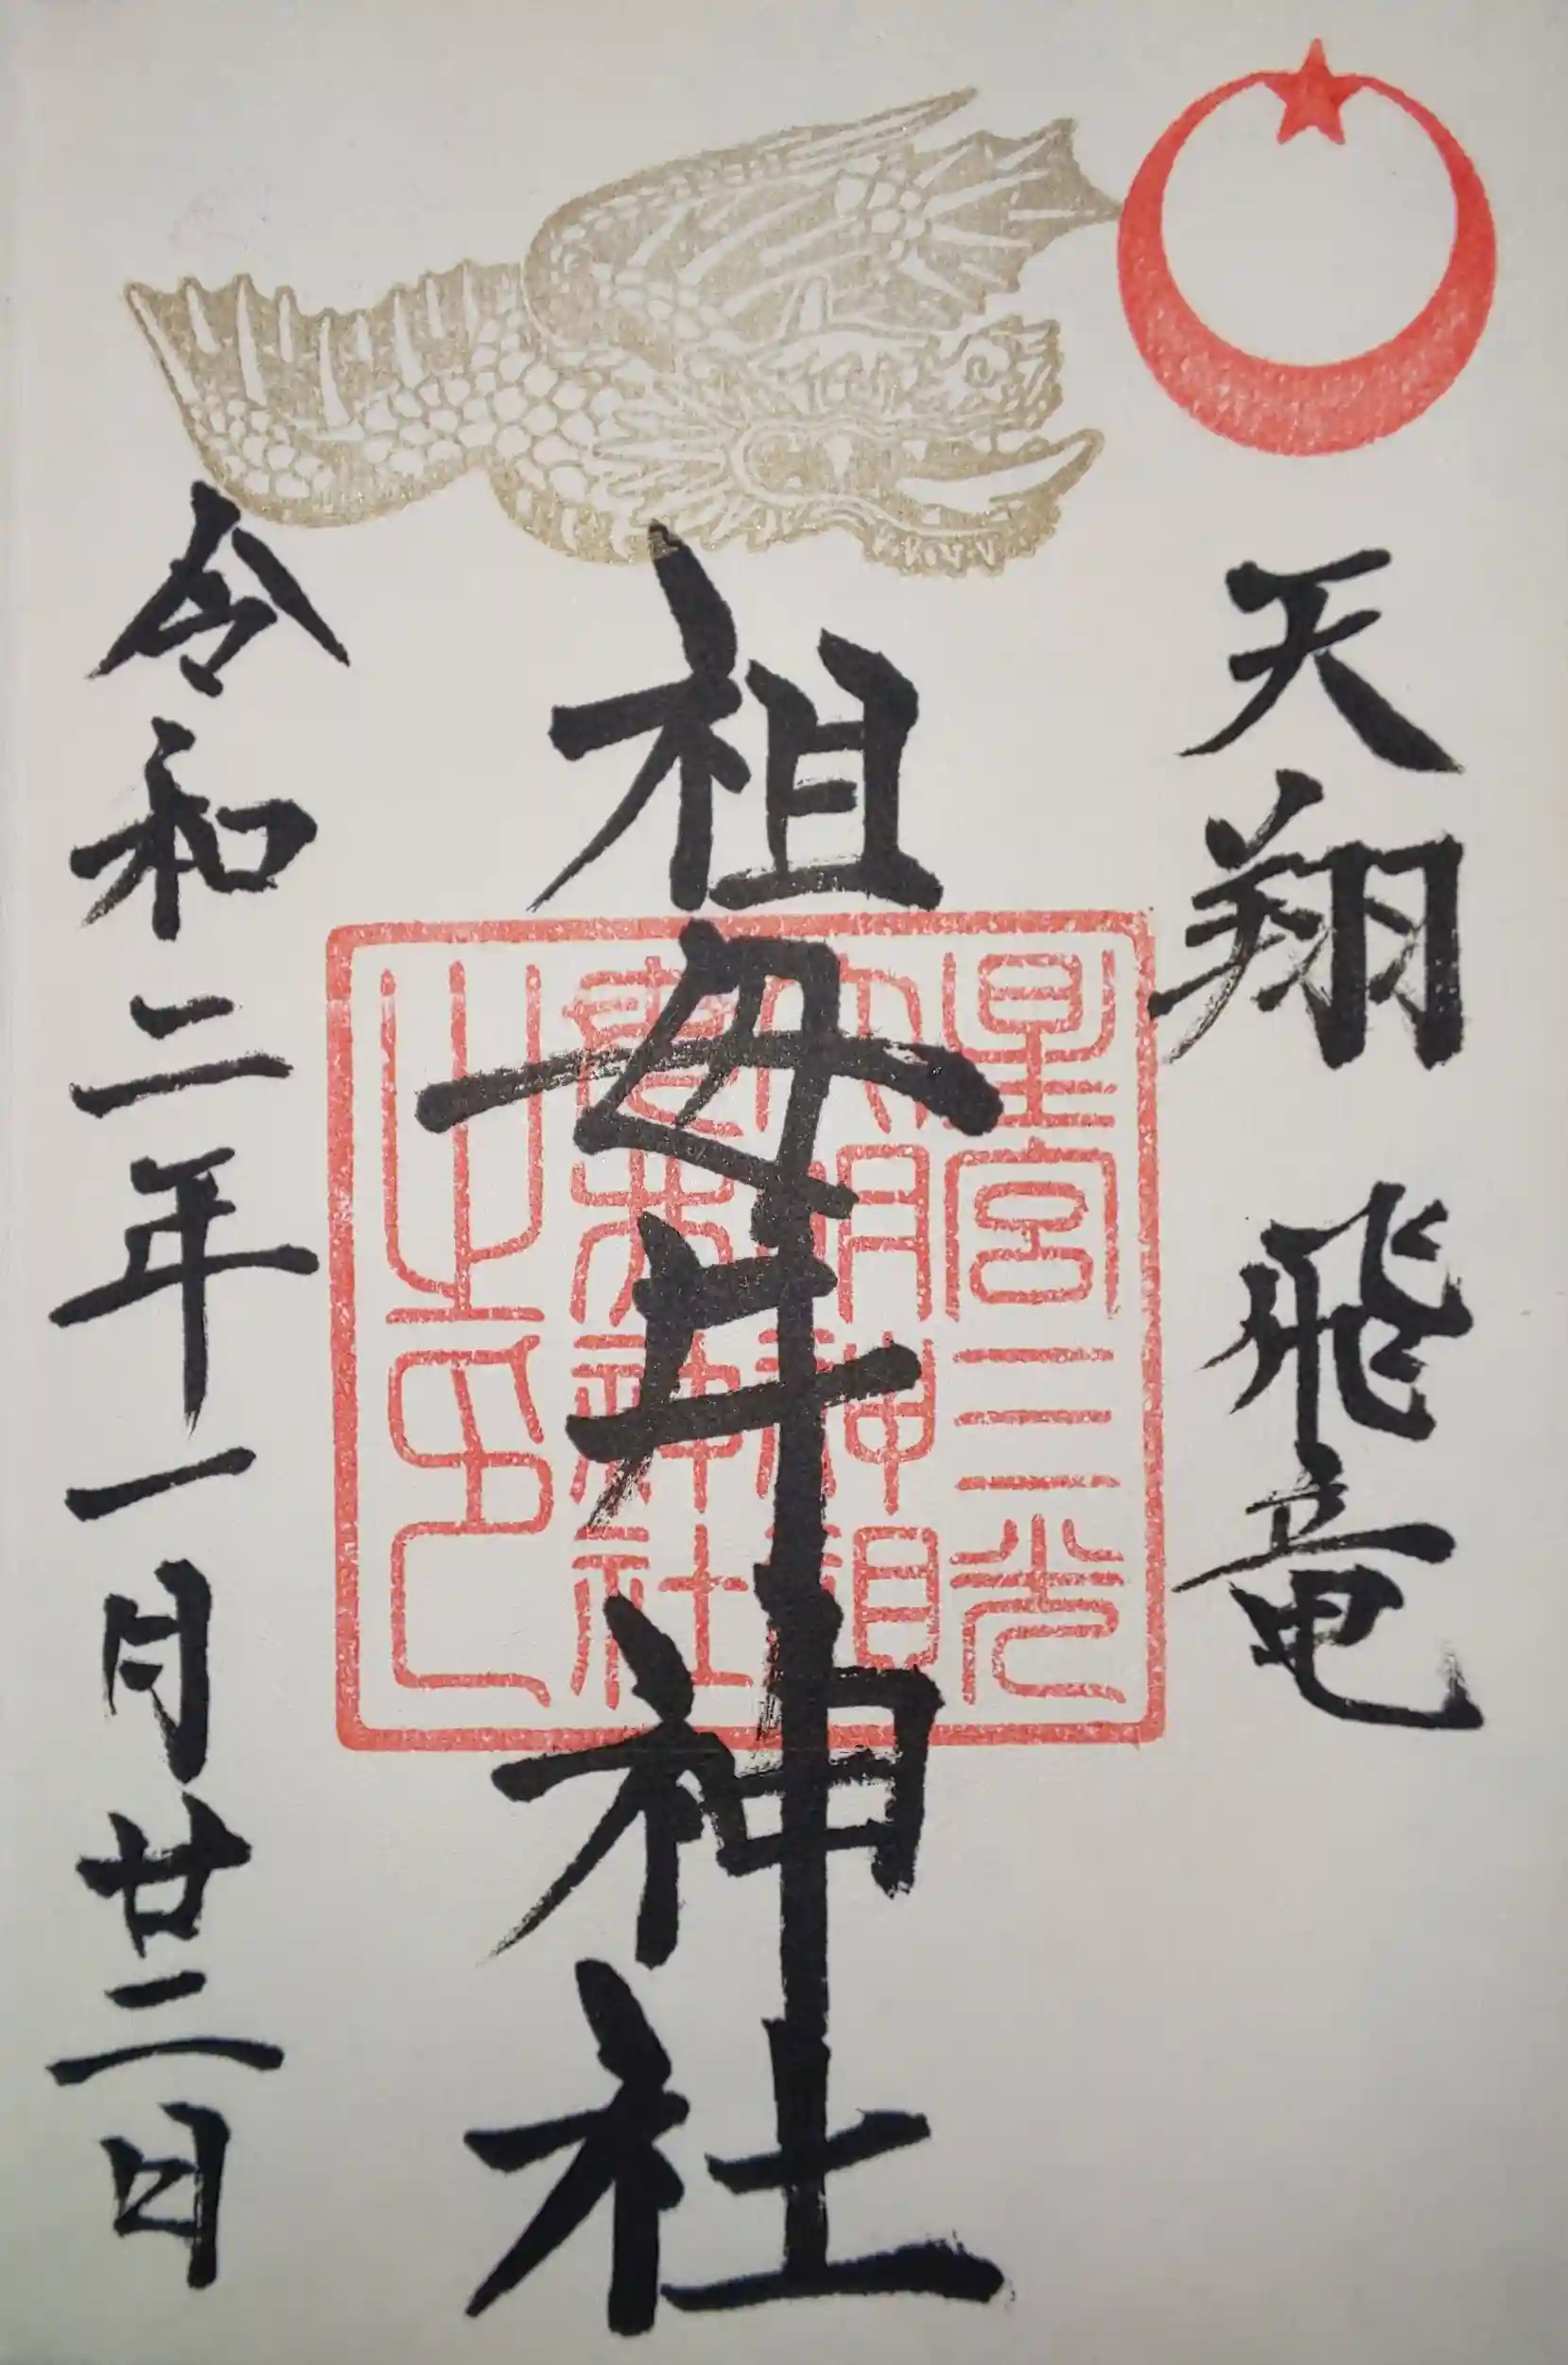 天翔 飛竜
祖母井神社
令和二年一月廿二日
星宮三光
大明神
神社
之印